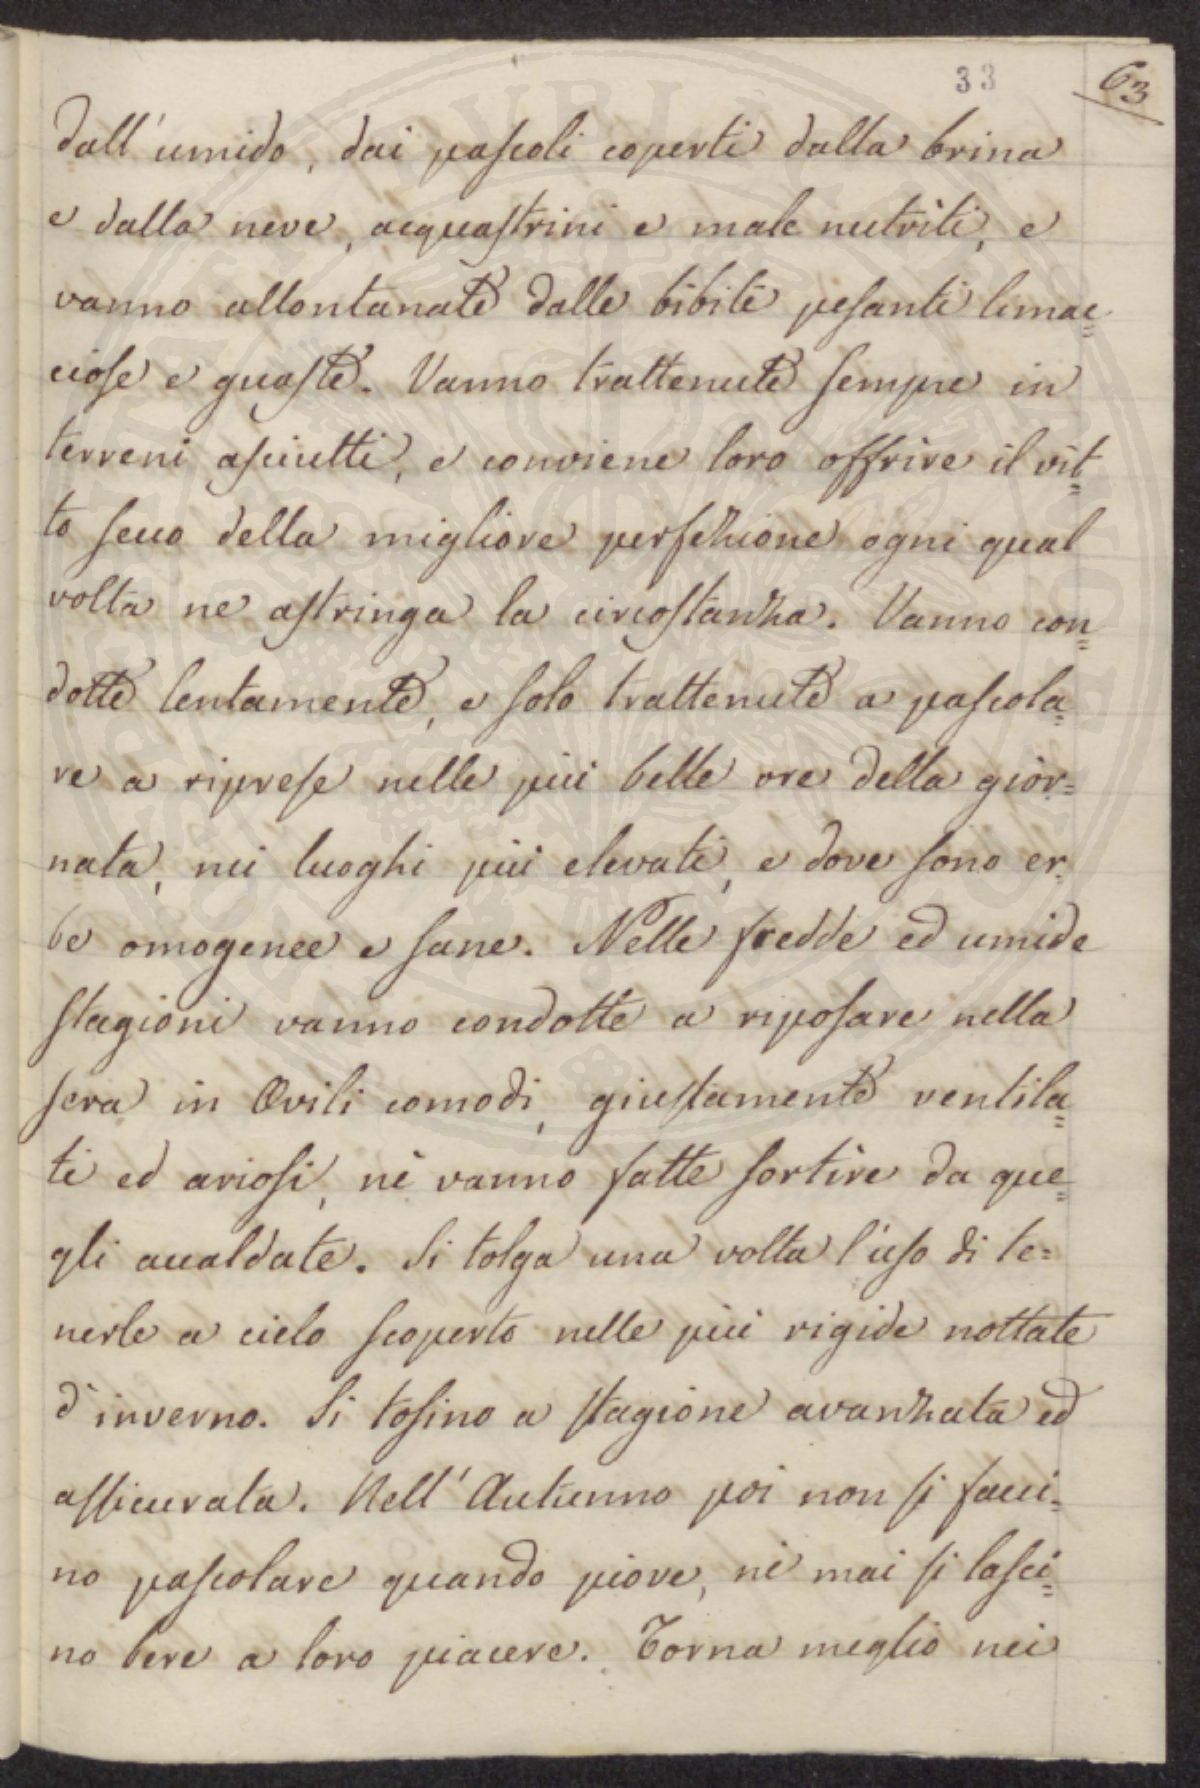 33 63
dall'umido, dai pascoli coperti dalla brina
e dalla neve, acquastrini e male nutriti, e
vanno allontanate dalle bibite pesanti limac=
ciose e guaste. Vanno trattenute sempre in
terreni asciutti, e conviene loro offrire il vit=
to secco della migliore perfezione ogni qual
volta ne astringa la circostanza. Vanno con=
dotte lentamente, e solo trattenute a pascola=
re a riprese nelle più belle ore della gior=
nata, nei luoghi più elevati, e dove sono er=
be omogenee e sane. Nelle fredde ed umide
stagioni vanno condotte a riposare nella
sera in Ovili comodi, giustamente ventila=
ti ed ariosi, nè vanno fatte sortire da que=
gli accaldate. Si tolga una volta l'uso di te=
nerle a cielo scoperto nelle più rigide nottate
d'inverno. Si tosino a stagione avanzata ed
assicurata. Nell'Autunno poi non si facci=
no pascolare quando piove, nè mai si lasci=
no bere a loro piacere. Torna meglio nei